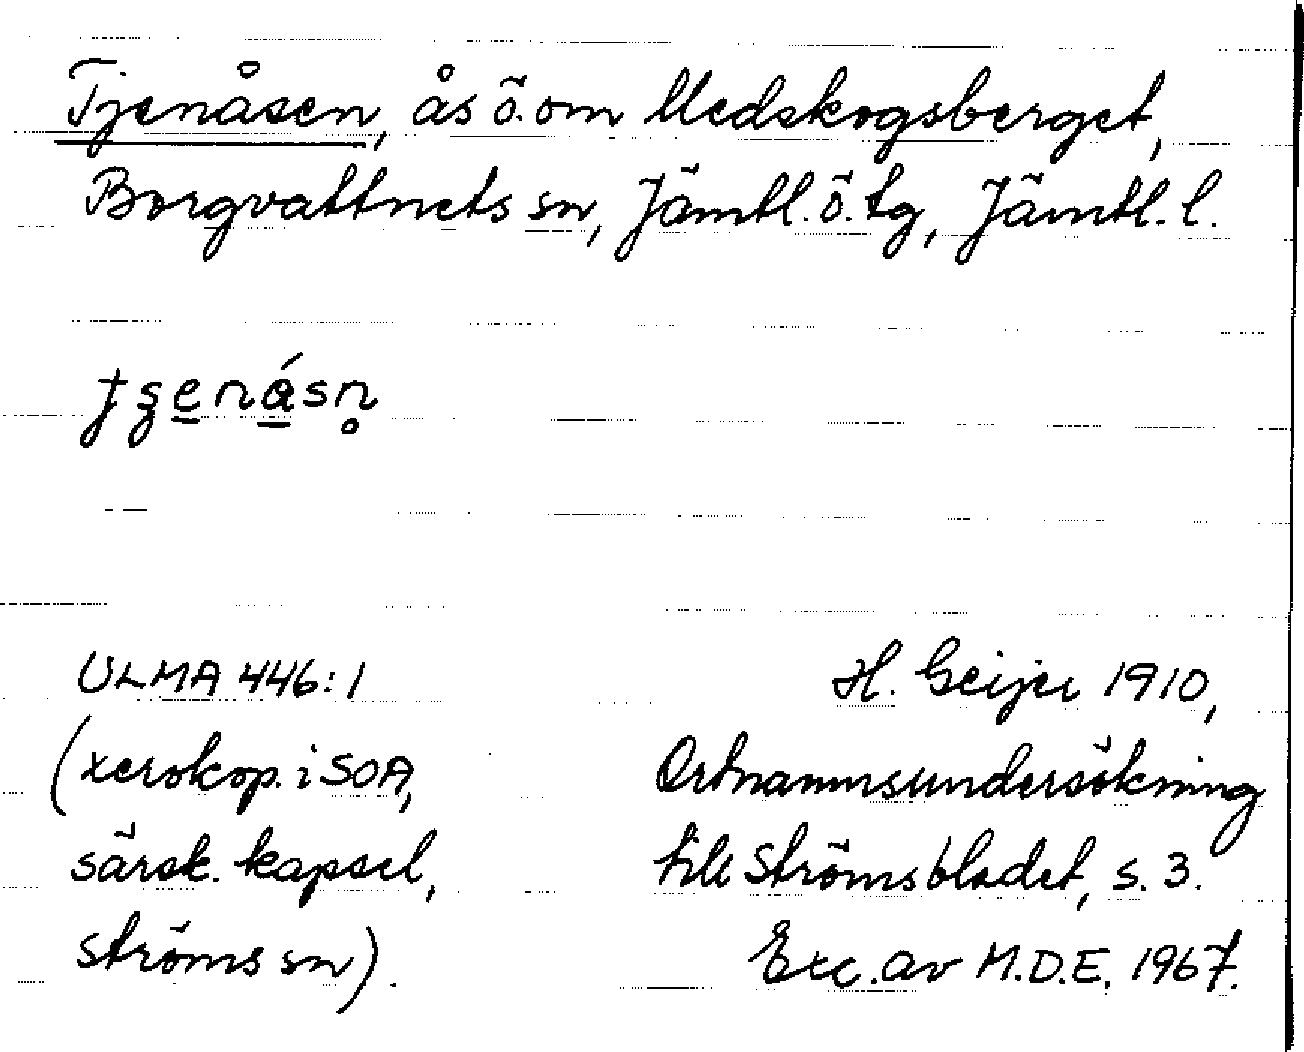 Tjenåsen, ås ö. om Medskogsberget,
Borgvattnets sn, Jämtl. ö. tg, Jämtl. l.
ULMA 446:1
(xerokop. i SOA,
särsk. kapsel,
Ströms sn).
H. Geijer 1910,
Ortnamnsundersökning
till Strömsbladet, s. 3.
Exc. av M.D.E. 1967.